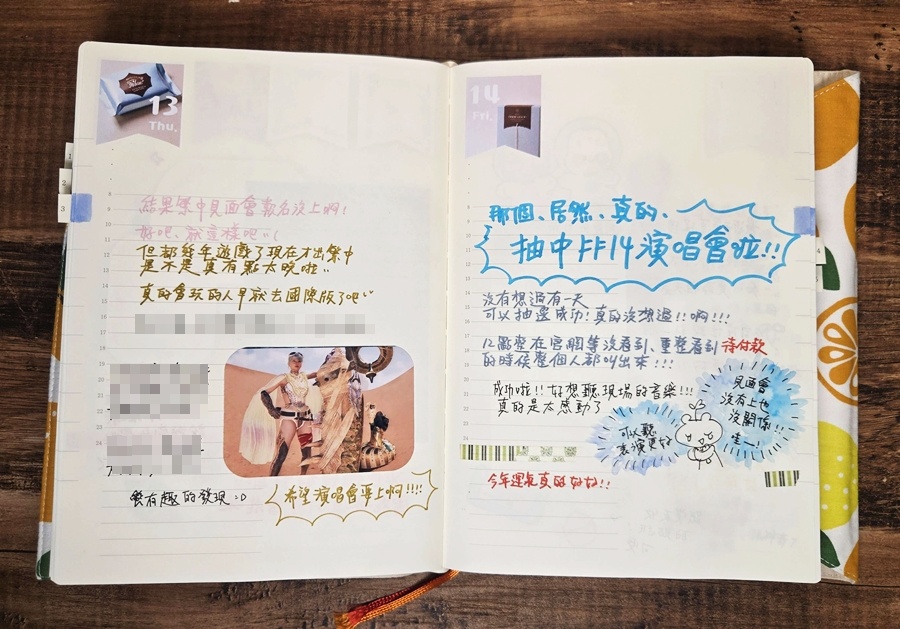 13
Thu.
結果繁中見面會報名沒上啊！
好吧、就這樣吧
但都幾年遊戲了現在才出繁中
是不是真有點太晚啦
真的會玩的人早就去國際版了吧
蠻有趣的發現 :D
希望演唱會要上啊!!!!
14
Fri.
那個、居然、真的、
抽中FF14演唱會啦!!
沒有想過有一天
可以抽選成功！真的沒想過!!啊!!!
12點整在官網等沒看到、重整看到待付款
的時候整個人都叫出來!!!
成功啦!! 好想聽現場的音樂!!!
真的是太感動了
可以聽
表演更好
見面會
沒有上也
沒關係!!
今年運氣真的好好!!
3
4